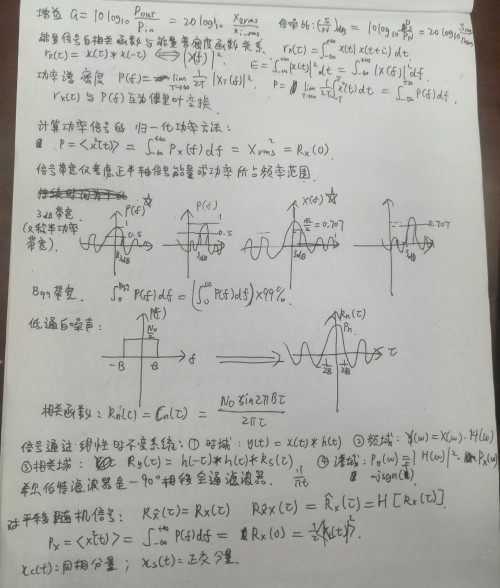 增益 G=10log₁₀ Pout/Pin = 20log₁₀ x₂rms/x₁rms 信噪比: (S/N)dB = 10log₁₀ Ps/PN = 20log₁₀ Srms/nrms
能量信号自相关函数与能量谱密度函数关系 rx(τ)=∫_{-∞}^{+∞} x(t)x(t+τ)dt.
rx(τ)=x(τ)*x(-τ) ⟺ |X(f)|². E=∫_{-∞}^{+∞}|x(t)|²dt=∫_{-∞}^{+∞}|X(f)|²df
功率谱密度 P(f)=lim_{T→∞} 1/2T |X_T(f)|² P=lim_{T→∞} 1/2T ∫_{-T}^{T} x²(t)dt=∫_{-∞}^{+∞}P(f)df
rx(τ)与P(f)互为傅里叶变换
计算功率信号的归一化功率方法:
P=<x²(t)>=∫_{-∞}^{+∞}Px(f)df=X²rms=Rx(0).
信号带宽仅考虑正半轴信号能量或功率所占频率范围.
3dB带宽 P(f) ☆ P(f) X(f) ☆
(又称半功率 0.5 0.5 =0.707 0.707
带宽). 3dB 3dB 3dB
B99带宽. ∫₀^{B99}P(f)df=(∫₀^{∞}P(f)df)×99%.
低通白噪声: P(f) Rn(τ)
N₀/2 Pn
-B B f ⟹ -1/2B 1/2B τ
相关函数: Rn(τ)=Cn(τ)= N₀sin2πBτ/2πτ
信号通过线性时不变系统: ①时域: y(t)=x(t)*h(t) ②频域: Y(w)=X(w)·H(w)
③相关域: Ry(τ)=h(-τ)*h(τ)*Rx(τ) ④谱域: Py(w)=|H(w)|²·Px(w)
希尔伯特滤波器是-90°相移全通滤波器. 1/πt -jsgn(f)
对平稳随机信号: Rx̂(τ)=Rx(τ) Rx̂x(τ)=R̂x(τ)=H[Rx(τ)].
Px=<x²(t)>=∫_{-∞}^{+∞}P(f)df=Rx(0)=½|x(t)|².
xc(t)=同相分量; xs(t)=正交分量.